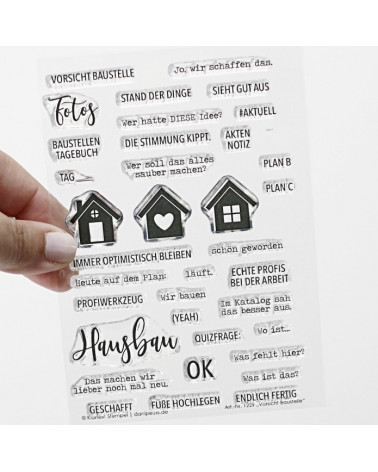 VORSICHT BAUSTELLE
Jo, wir schaffen das.
Fotos
STAND DER DINGE
SIEHT GUT AUS
Wer hatte DIESE Idee?
#AKTUELL
BAUSTELLEN
TAGEBUCH
DIE STIMMUNG KIPPT.
AKTEN
NOTIZ
TAG
Wer soll das alles
sauber machen?
PLAN B
PLAN C
IMMER OPTIMISTISCH BLEIBEN
schön geworden
Heute auf dem Plan:
läuft.
ECHTE PROFIS
BEI DER ARBEIT
PROFIWERKZEUG
Wir bauen
Im Katalog sah
das besser aus.
(YEAH)
Hausbau
QUIZFRAGE:
Wo ist...
Was fehlt hier?
OK
Das machen wir
lieber noch mal neu.
Was ist das?
GESCHAFFT
FÜßE HOCHLEGEN
ENDLICH FERTIG
© Klartext Stempel | danipeuss.de
Art.-Nr. 1226 „Vorsicht Baustelle“